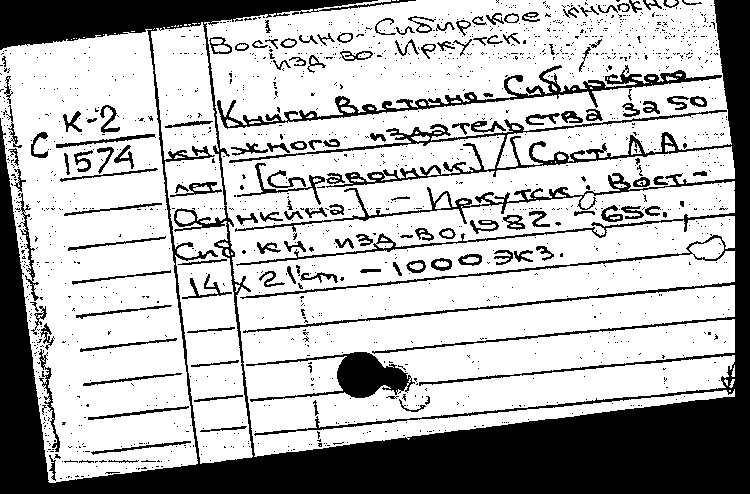 Восточно-Сибирское книжное
изд-во. Иркутск.
С К-2
1574
Книги Восточно-Сибирского
книжного издательства за 50
лет : [Справочник] / [Сост. Л.А.
Осинкина]. - Иркутск : Вост.-
Сиб. кн. изд-во, 1982. - 65с. ;
14 х 21 cm. - 1000 экз.